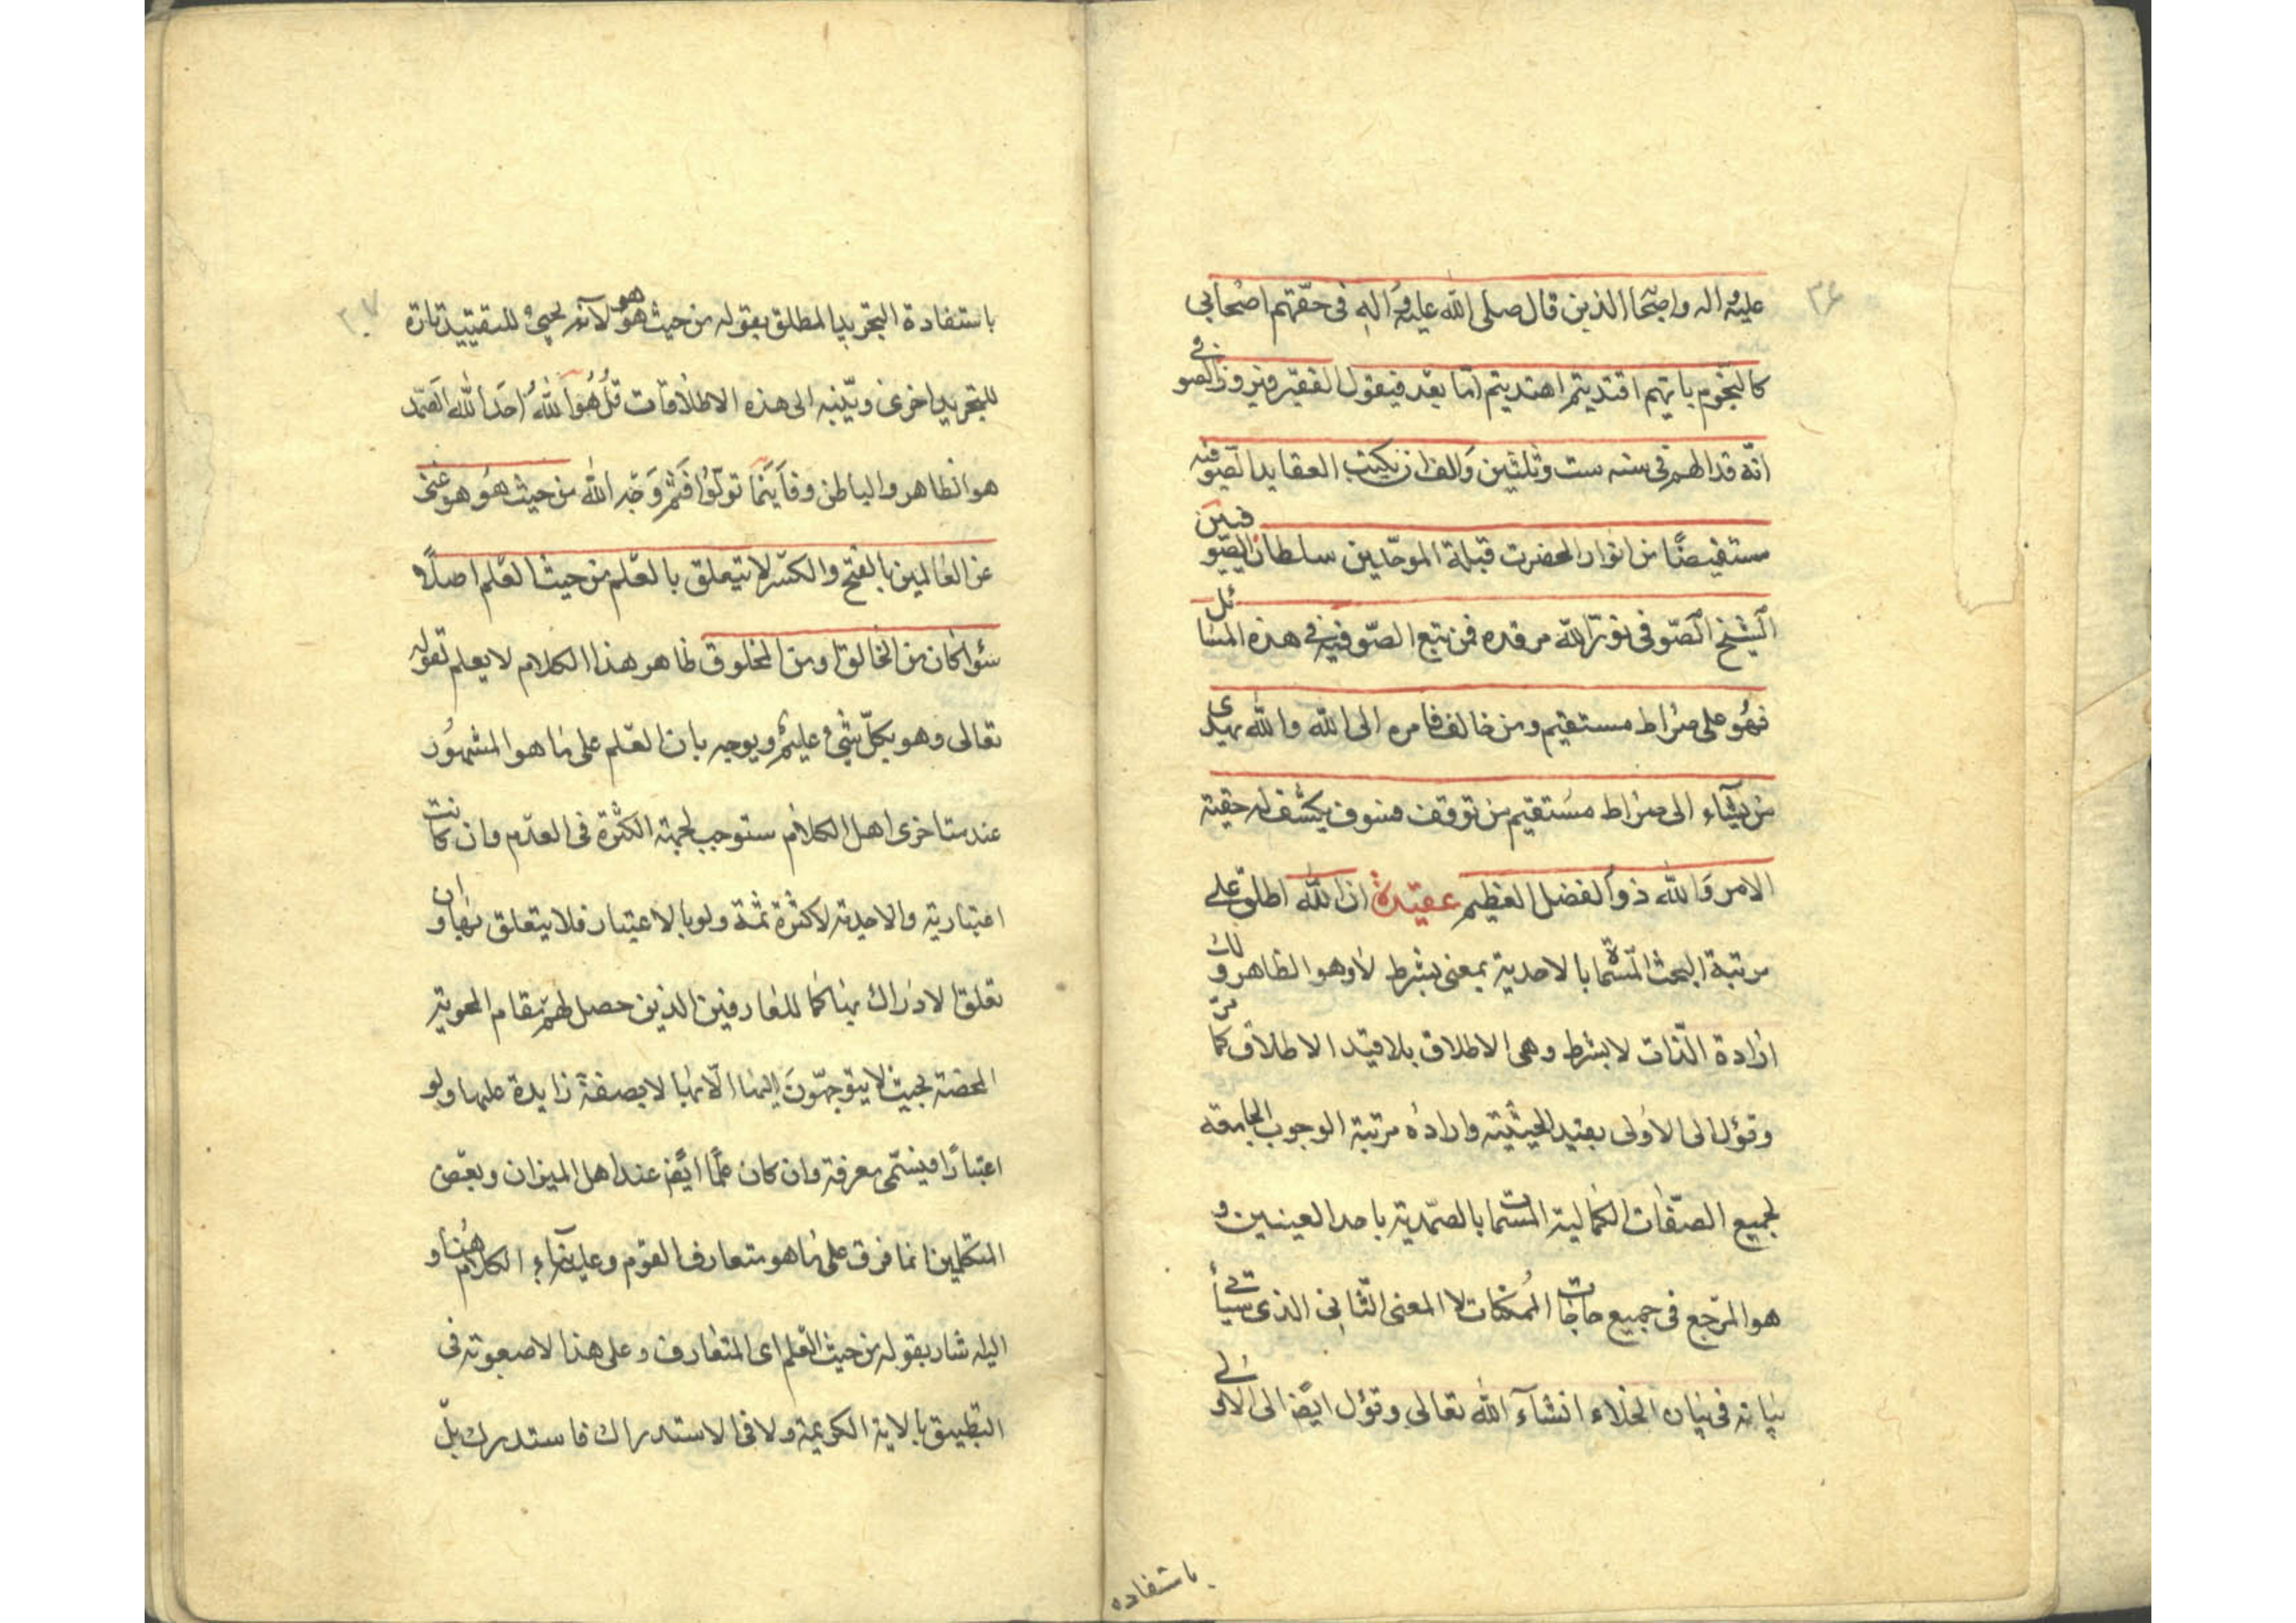 ۳۶
عليه وآله واصحابه الذين قال صلى الله عليه وآله فى حقهم اصحابي
كالنجوم بايهم اقتديتم اهتديتم اما بعد فيقول الفقير فيروز الصوفي
انه قد الهم فى سنه ست وثلثين والف ان يكتب العقايد الصوفيه
مستفيضًا من انوار الحضرت قبلة الموحدين سلطان الصوفين
الشيخ الصوفى نور الله مرقده فمن تبع الصوفيه فى هذه المسائل
فهو على صراط مستقيم ومن خالف فامره الى الله والله يهدى
من يشآء الى صراط مستقيم من توقف فسوف يكشف له حقية
الامر والله ذو الفضل العظيم عقيدة ان الله اطلق على
مرتبة البحث المسماة بالاحدية بمعنى بشرط لا وهو الظاهر ولك
ارادة الذات لا بشرط وهى الاطلاق بلا قيد الاطلاق كما مر
وتؤل الى الاولى بقيد الحيثية واراده مرتبة الوجوب الجامعة
لجميع الصفات الكمالية المسمات بالصمدية باحد العينين و
هو المرجع فى جميع حاجات الممكنات لا المعنى الثانى الذى سيأتى
بيانه فى بيان الخلاء انشآء الله تعالى وتؤل ايضًا الى الاولى
باستفاده
۳۷
باستفادة التجريد المطلق بقوله من حيث هو هو لانه يجيئ للتقييد تارة
للتجريد اخرى وينبه الى هذه الاطلاقات قل هو الله احد الله الصمد
هو الظاهر والباطن وفاينما تولوا فثم وجه الله من حيث هو هو غنى
عن العالمين بالفتح والكسر لا يتعلق بالعلم من حيث العلم اصلًا
سؤا كان من الخالق او من المخلوق ظاهر هذا الكلام لا يعلم لقوله
تعالى وهو بكل شئ عليم ويوجه بان العلم على ما هو المشهور
عند متاخرى اهل الكلام ستوجب لجهة الكثرة فى العدم وان كانت
اعتبارية والاحدية لا كثرة ثمة ولو بالاعتبار فلا يتعلق بها وان
تعلق الادراك بها كما للعارفين الذين حصل لهم مقام المحوية
المحضة بحيث لا يتوجهون اليها الا بها لا بصفة زايدة عليها ولو
اعتبارًا فيسمى معرفة وان كان علمًا ايضًا عند اهل الميزان وبعض
المتكلمين انما فرق على ما هو متعارف القوم وعليه بنآء الكلام هنا و
اليه شار بقوله من حيث العلم اى المتعارف وعلى هذا لا صعوبة فى
التطبيق بالاية الكريمة ولا فى الاستدراك فاستدرك بل